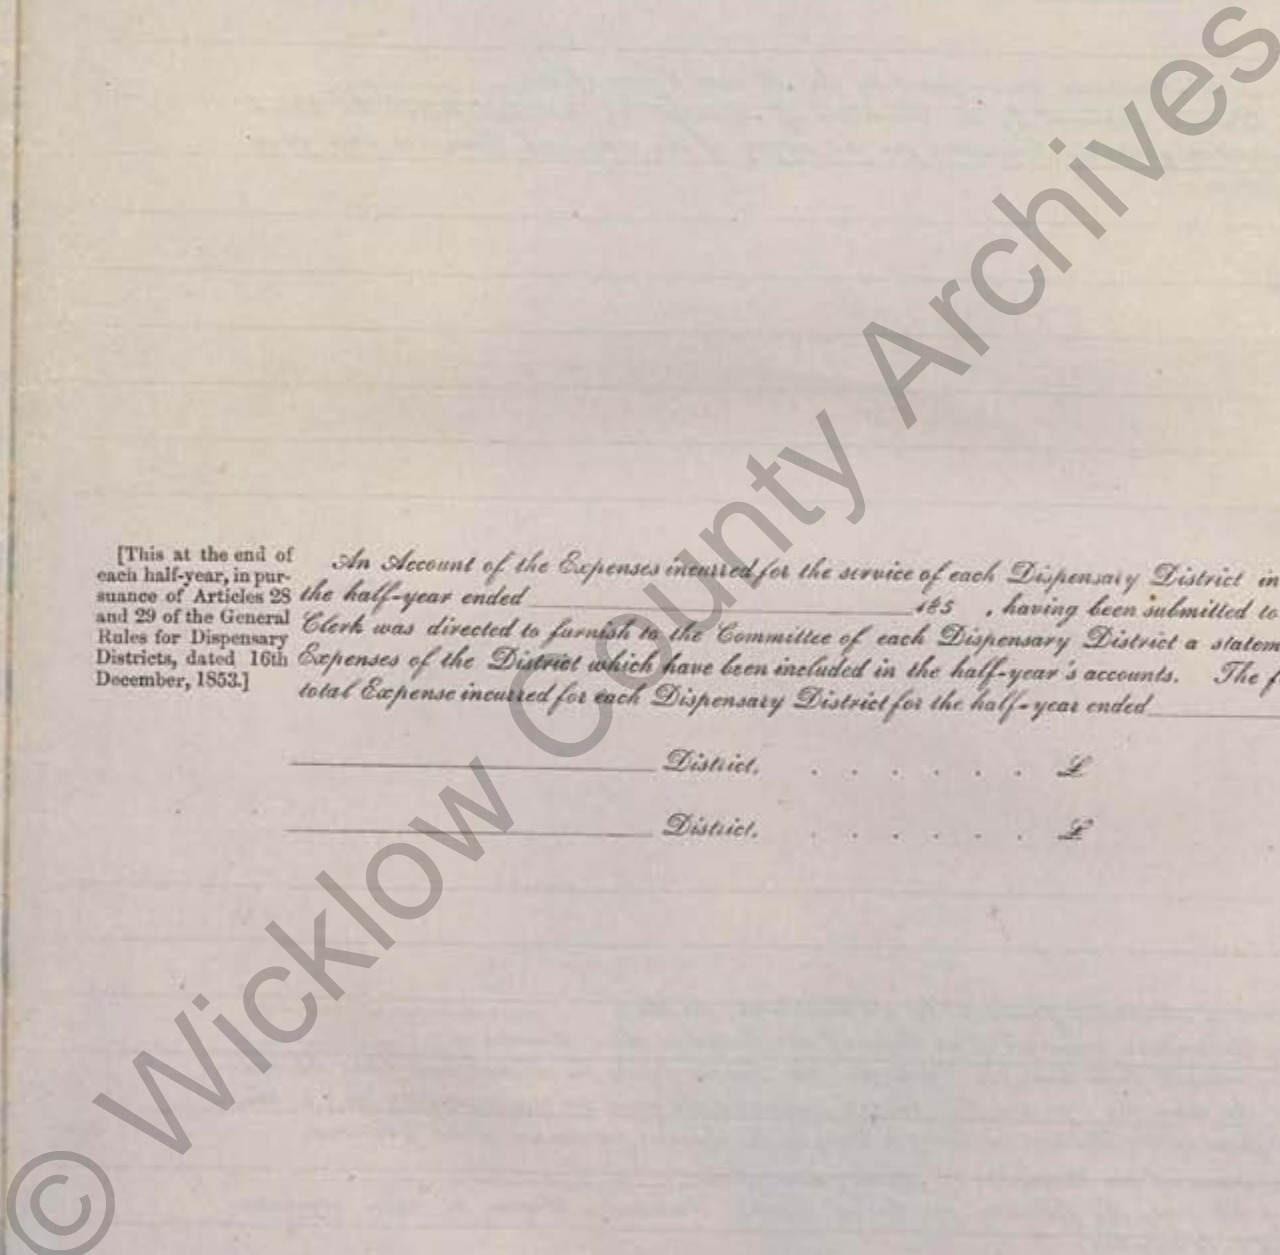 [This at the end of
each half-year, in pur-
suance of Articles 28
and 29 of the General
Rules for Dispensary
Districts, dated 16th
December, 1853.]
An Account of the Expenses incurred for the service of each Dispensary District in
the half-year ended 185 , having been submitted to
Clerk was directed to furnish to the Committee of each Dispensary District a statem
Expenses of the District which have been included in the half-year's accounts. The f
total Expense incurred for each Dispensary District for the half-year ended
District. . . . . . . £
District. . . . . . . £
© Wicklow County Archives